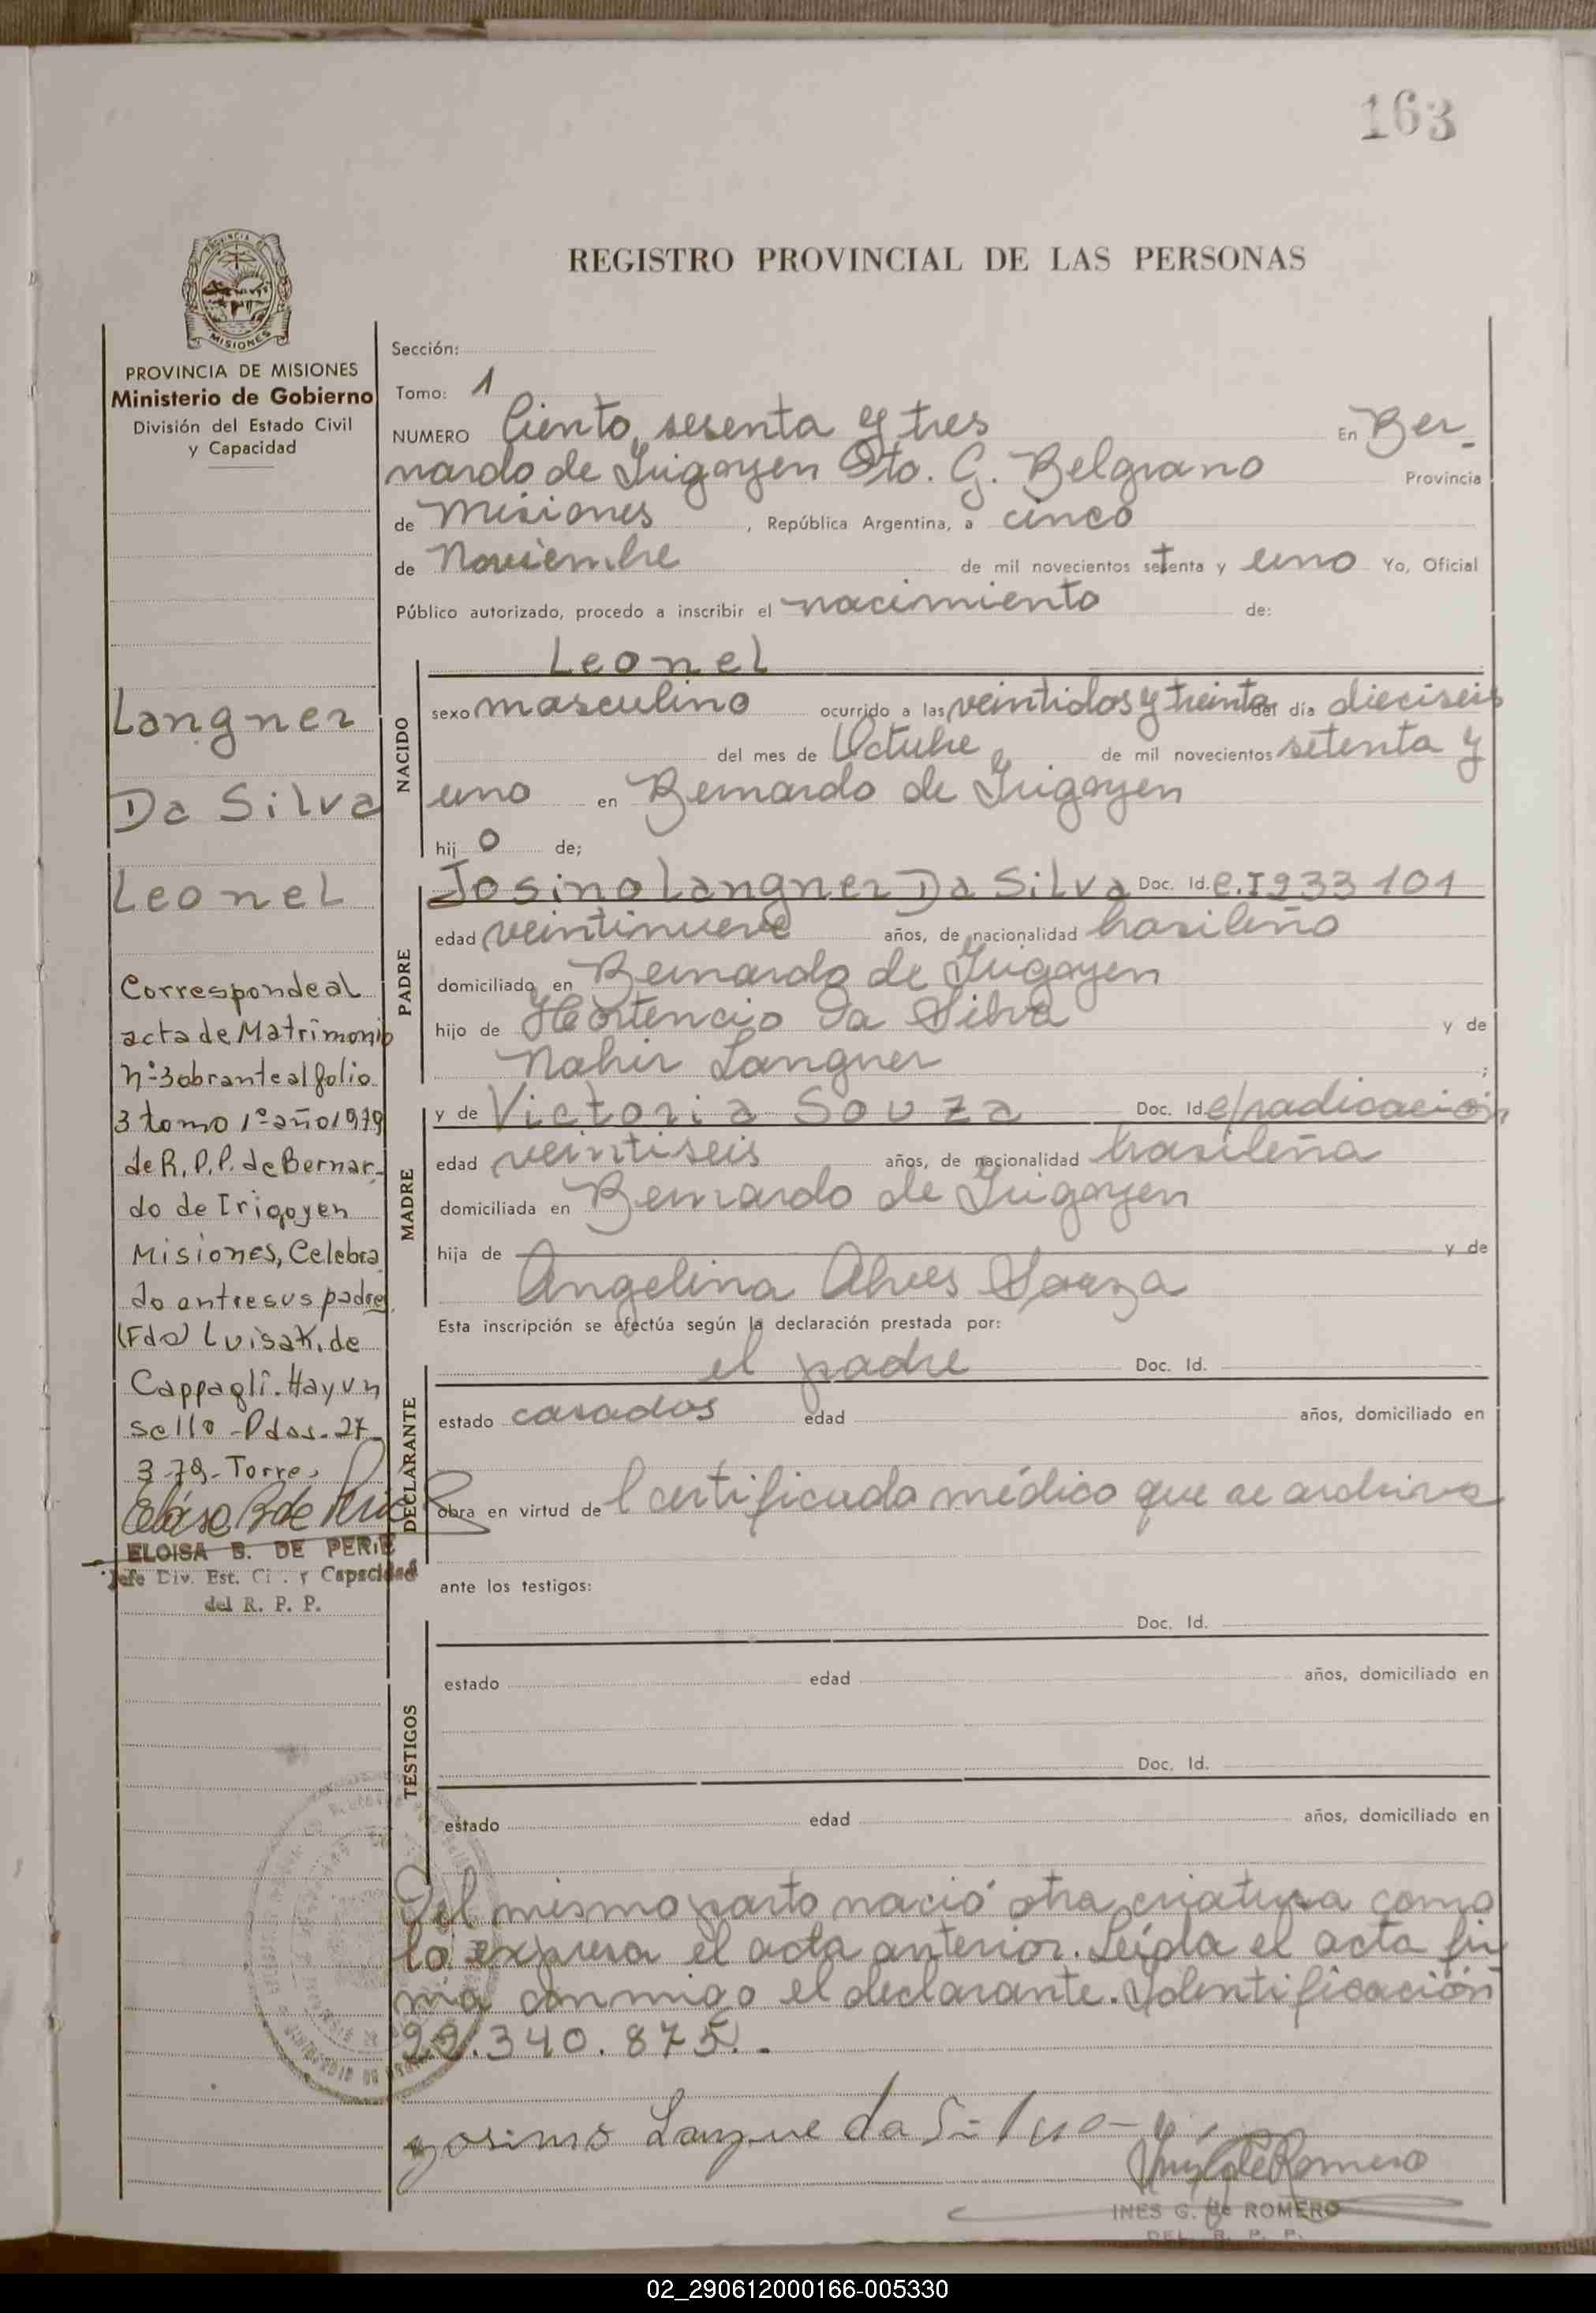 163
REGISTRO PROVINCIAL DE LAS PERSONAS
PROVINCIA DE
MISIONES
PROVINCIA DE MISIONES
Ministerio de Gobierno
División del Estado Civil
y Capacidad
Langner
Da Silva
Leonel
Corresponde al
acta de Matrimonio
nº 3 obrante al folio
3 tomo 1º año 1979
de R.P.P. de Bernar-
do de Irigoyen
Misiones, Celebra
do entre sus padres
(Fdo) Luisa K. de
Cappagli. Hay un
sello - Pdas. 27
3 79 - Torres
ELOISA B. DE PERIE
Jefe Div. Est. Ci . y Capacidad
del R. P. P.
Sección:
Tomo: 1
NUMERO Ciento sesenta y tres En Ber-
nardo de Irigoyen Dto. G. Belgrano Provincia
de Misiones , República Argentina, a cinco
de Noviembre de mil novecientos setenta y uno Yo, Oficial
Público autorizado, procedo a inscribir el nacimiento de:
NACIDO
Leonel
sexo masculino ocurrido a las veintidos y treinta del día dieciseis
del mes de Octubre de mil novecientos setenta y
uno en Bernardo de Irigoyen
hij o de;
PADRE
Josino Langner Da Silva Doc. Id. C.I 933 101
edad veintinueve años, de nacionalidad brasileño
domiciliado en Bernardo de Irigoyen
hijo de Hortencio Da Silva y de
Nahir Langner ;
MADRE
y de Victoria Souza Doc. Id c/radicación
edad veintiseis años, de nacionalidad brasileña
domiciliada en Bernardo de Irigoyen
hija de y de
Angelina Alves Souza
Esta inscripción se efectúa según la declaración prestada por:
DECLARANTE
el padre Doc. Id.
estado casados edad años, domiciliado en
obra en virtud de l certificado médico que se archiva
ante los testigos:
TESTIGOS
Doc. Id.
estado edad años, domiciliado en
Doc. Id.
estado edad años, domiciliado en
Del mismo parto nació otra criatura como
lo expresa el acta anterior. Leída el acta fir
ma conmigo el declarante. Identificación
22.340.875.-
Josino Langne da Silva
INES G. de ROMERO
DEL. R. P. P.
02_290612000166-005330